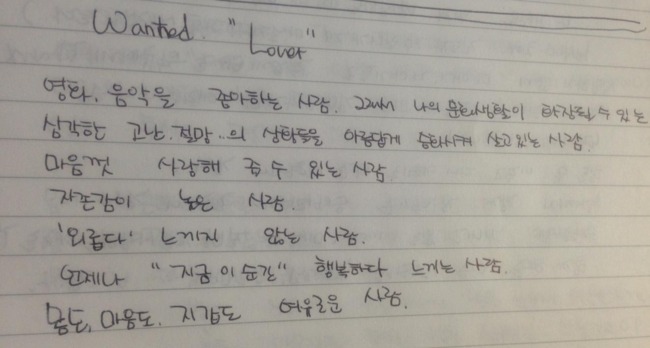 Wanted. "Lover"
영화, 음악을 좋아하는 사람. 그래서 나의 문화생활이 확장될 수 있는
심각한 고난. 절망. 의 상황들을 아름답게 승화시켜 살고있는 사람.
마음껏 사랑해 줄 수 있는 사람
자존감이 높은 사람.
'외롭다' 느끼지 않는 사람.
언제나 "지금 이 순간" 행복하다 느끼는 사람.
몸도, 마음도, 지갑도 여유로운 사람.